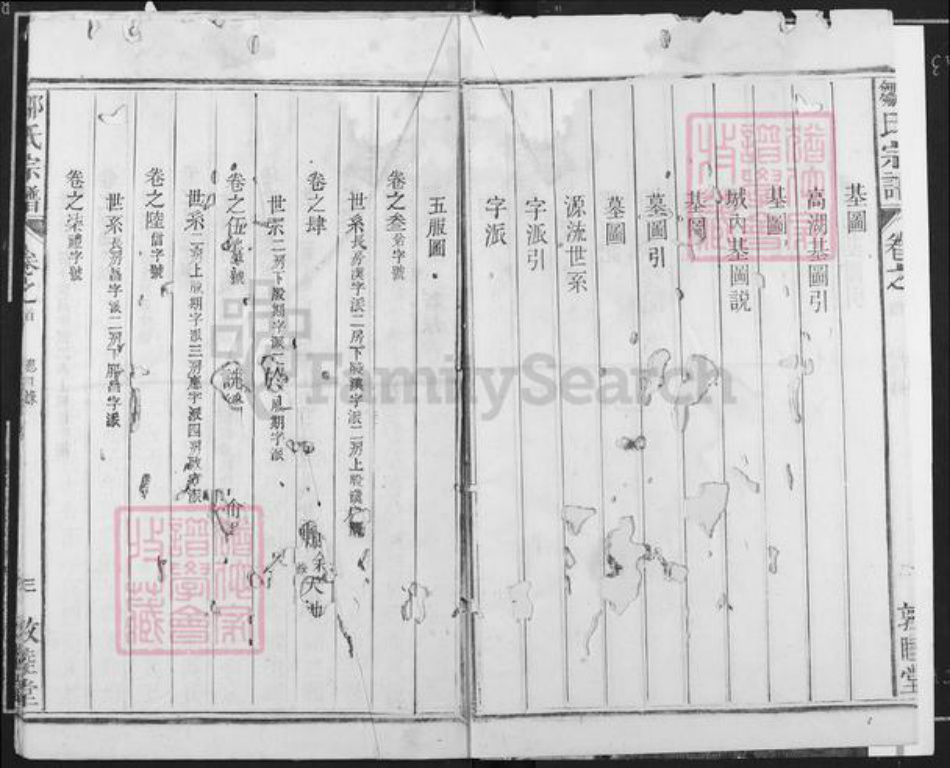 鄒氏宗譜 卷之
基圖
高湖基圖引
基圖
城內基圖説
基圖
墓圖引
墓圖
源流世系
字派引
字派
敦睦堂
五服圖
卷之叁 字號
世系 長房漢字派二房下股漢字派二房上股漢
卷之肆
世系 二房下股期字派 期字派
卷之伍 號
世系 二房上股期字派三房應字派四房 派
卷之陸 信字號
世系 長房昌字派二房下股昌字派
卷之柒 禮字號
鄒氏宗譜 卷之首 總目錄 三 敦睦堂
FamilySearch